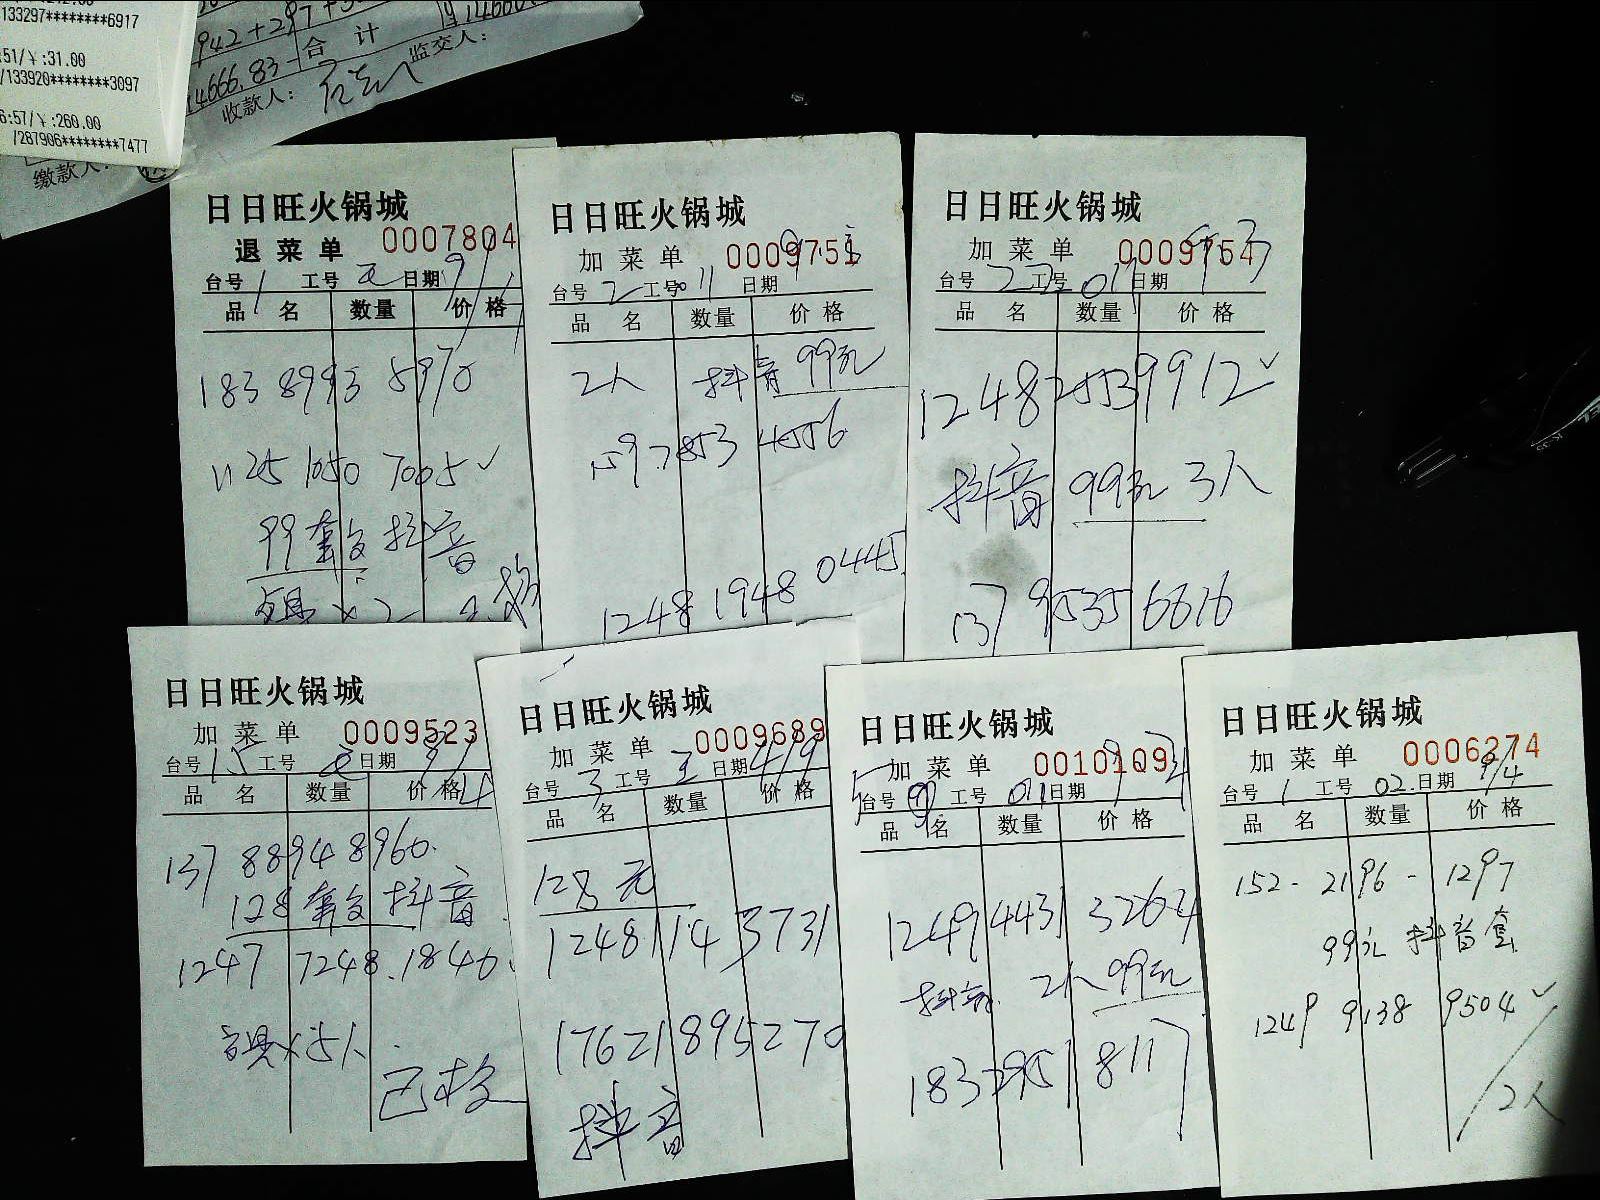 133297********6917
:51/¥:31.00
/133920********3097
6:57/¥:260.00
/287906********7477
缴款人:
合 计
14666.83
收款人:
监交人:
日日旺火锅城
退菜单 0007804
台号 1 工号 日期 9/1
品 名 数量 价格
183 8993 5970
1125 1050 7005✓
99套台抖音
日日旺火锅城
加菜单 0009751
台号 2 工号 011 日期 9.3
品 名 数量 价格
2人 抖音 99元
159.7853 4556
1248 1948 0445
日日旺火锅城
加菜单 0009754
台号 22 工号 011 日期 9.3
品 名 数量 价格
1248 2553 9912✓
抖音 99元 3人
137 9535 6616
日日旺火锅城
加菜单 0009523
台号 15 工号 日期 9/4
品 名 数量 价格
137 8894 8960.
128套台抖音.
1247 7248.1846.
餐具×5人.
已核
日日旺火锅城
加菜单 0009689
台号 3 工号 日期 4/9
品 名 数量 价格
128元
1248 114 3731
1762 1895270
抖音
日日旺火锅城
加菜单 0010109
台号 工号 011 日期
品 名 数量 价格
1249 4431 3264
抖音. 2人 99元
183 2951 8117
日日旺火锅城
加菜单 0006274
台号 1 工号 02. 日期 9/4
品 名 数量 价格
152-2196-1297
99元 抖音套
1249 9138 9504✓
2人